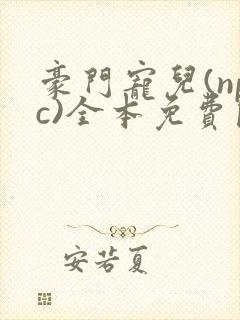 豪門寵兒(np
c)全本免費
安若夏